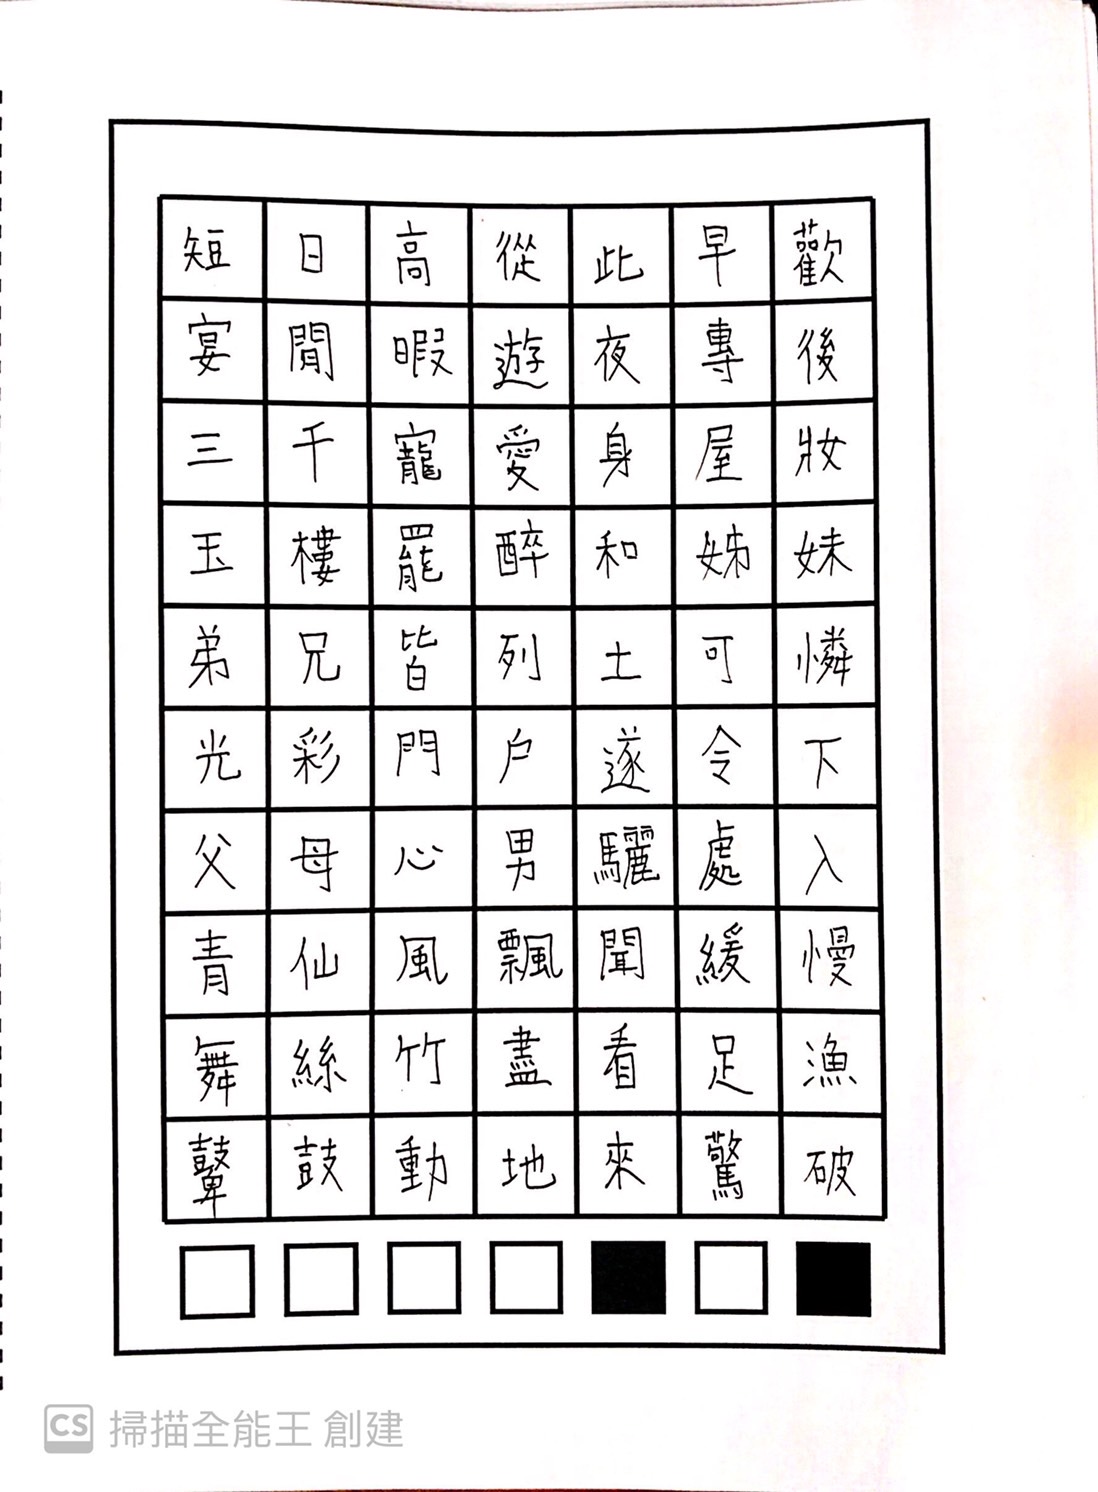 短日高從此早歡
宴閒暇遊夜專後
三千寵愛身屋妝
玉樓罷醉和姊妹
弟兄皆列土可憐
光彩門户遂令下
父母心男驪處入
青仙風飄聞緩慢
舞絲竹盡看足漁
鼙鼓動地來驚破
CS 掃描全能王 創建